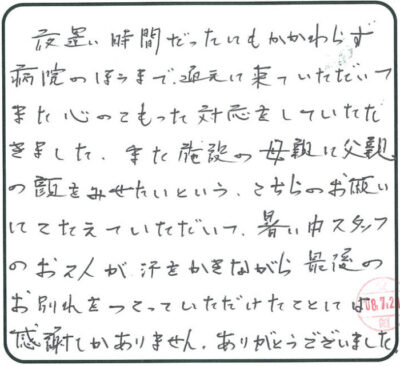 夜遅い時間だったにもかかわらず
病院のほうまで、迎えに来ていただいて
また心のこもった対応をしていただ
きました。また施設の母親に父親
の顔をみせたいという、こちらのお願い
にこたえていただいて、暑い中スタッフ
のお2人が汗をかきながら最後の
お別れをつくっていただけたことには
感謝しかありません。ありがとうございました